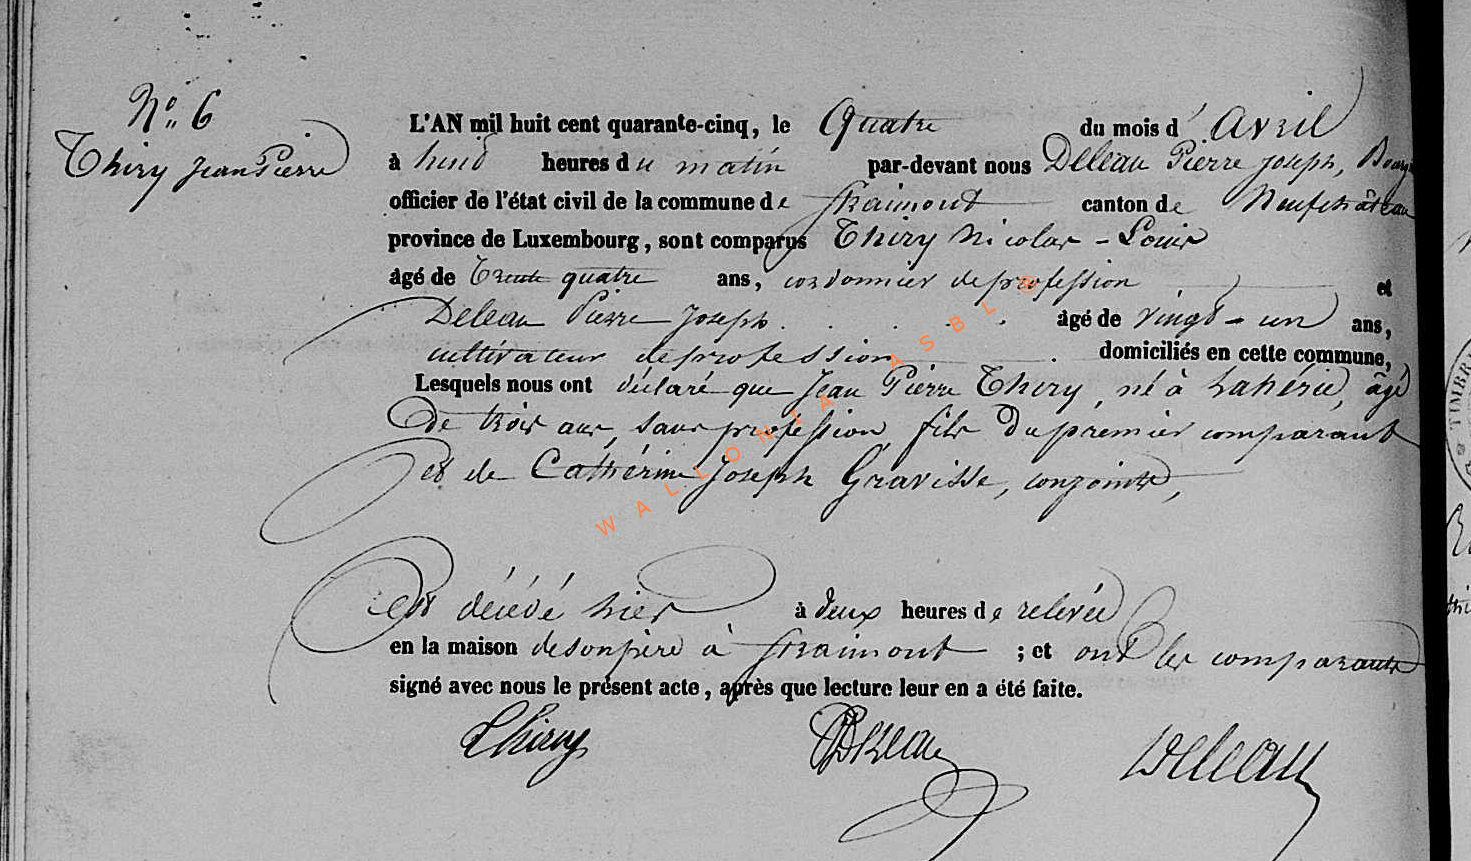 N° 6
Thiry Jean Pierre
L'AN mil huit cent quarante-cinq, le Quatre du mois d'Avril
à huit heures du matin par-devant nous Deleau Pierre Joseph, Bourg
officier de l'état civil de la commune de Straimont canton de Neufchâteau
province de Luxembourg, sont comparus Thiry Nicolas-Louis
âgé de Trente quatre ans, cordonnier de profession et
Deleau Pierre Joseph . . . . . âgé de vingt-un ans,
cultivateur de profession domiciliés en cette commune,
Lesquels nous ont déclaré que Jean Pierre Thiry, né à Lahérie, âgé
De trois ans, sans profession, fils Du premier comparant
et de Cathérine Joseph Gravisse, conjoints,
est décédé hier à deux heures de relevée
en la maison de son père à Straimont ; et ont les comparants
signé avec nous le présent acte, après que lecture leur en a été faite.
Thiry
PJDeleau
Deleau
WALLONIA ASBL ©
TIMBRE